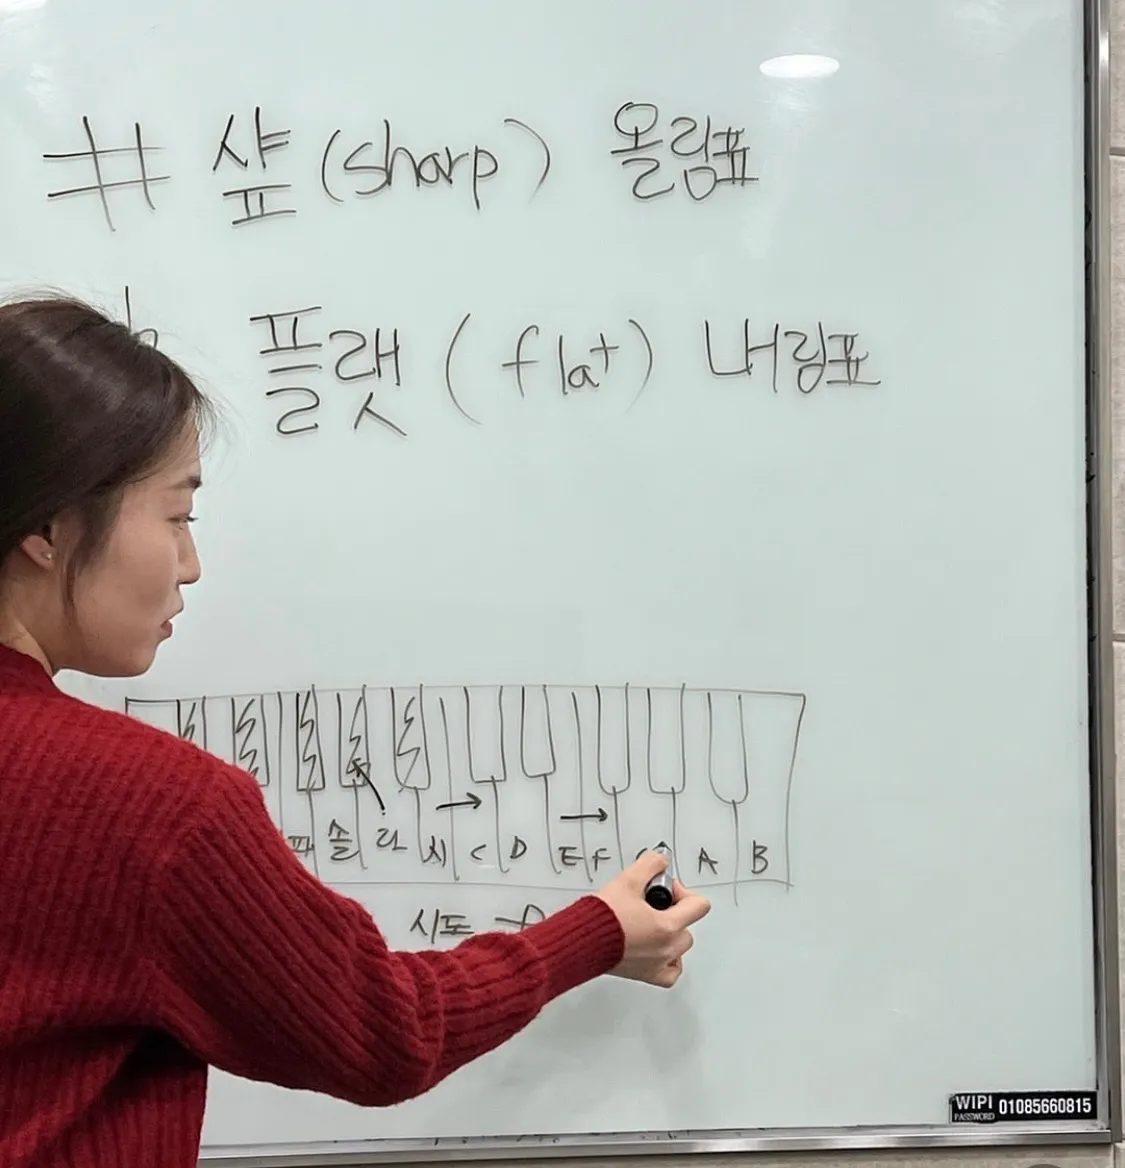 # 샾 (sharp) 올림표
b 플랫 (flat) 내림표
파 솔 라 시 C D E F A B
시도
WIPI PASSWORD 01085660815